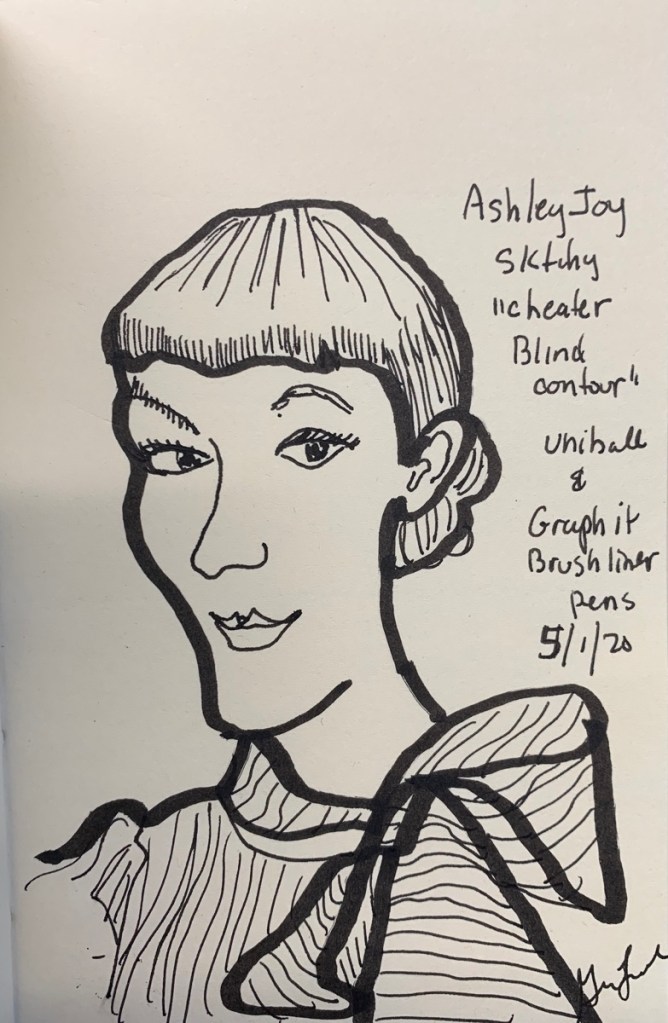 Ashley Joy
Sktchy
"cheater
Blind
contour"
uniball
&
Graph it
Brush liner
pens
5/1/20